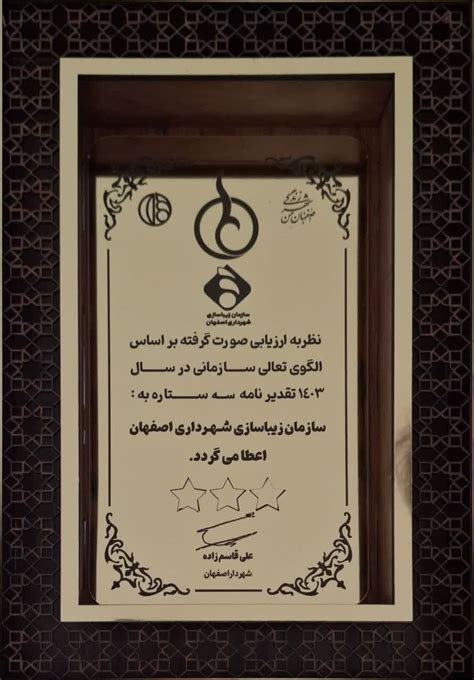 اصفهان من شهر زندگی
سازمان زیباسازی
شهرداری اصفهان
نظر به ارزیابی صورت گرفته بر اساس
الگوی تعالی سازمانی در سال
۱۴۰۳ تقدیر نامه سه ستاره به :
سازمان زیباسازی شهرداری اصفهان
اعطا می گردد.
علی قاسم زاده
شهردار اصفهان